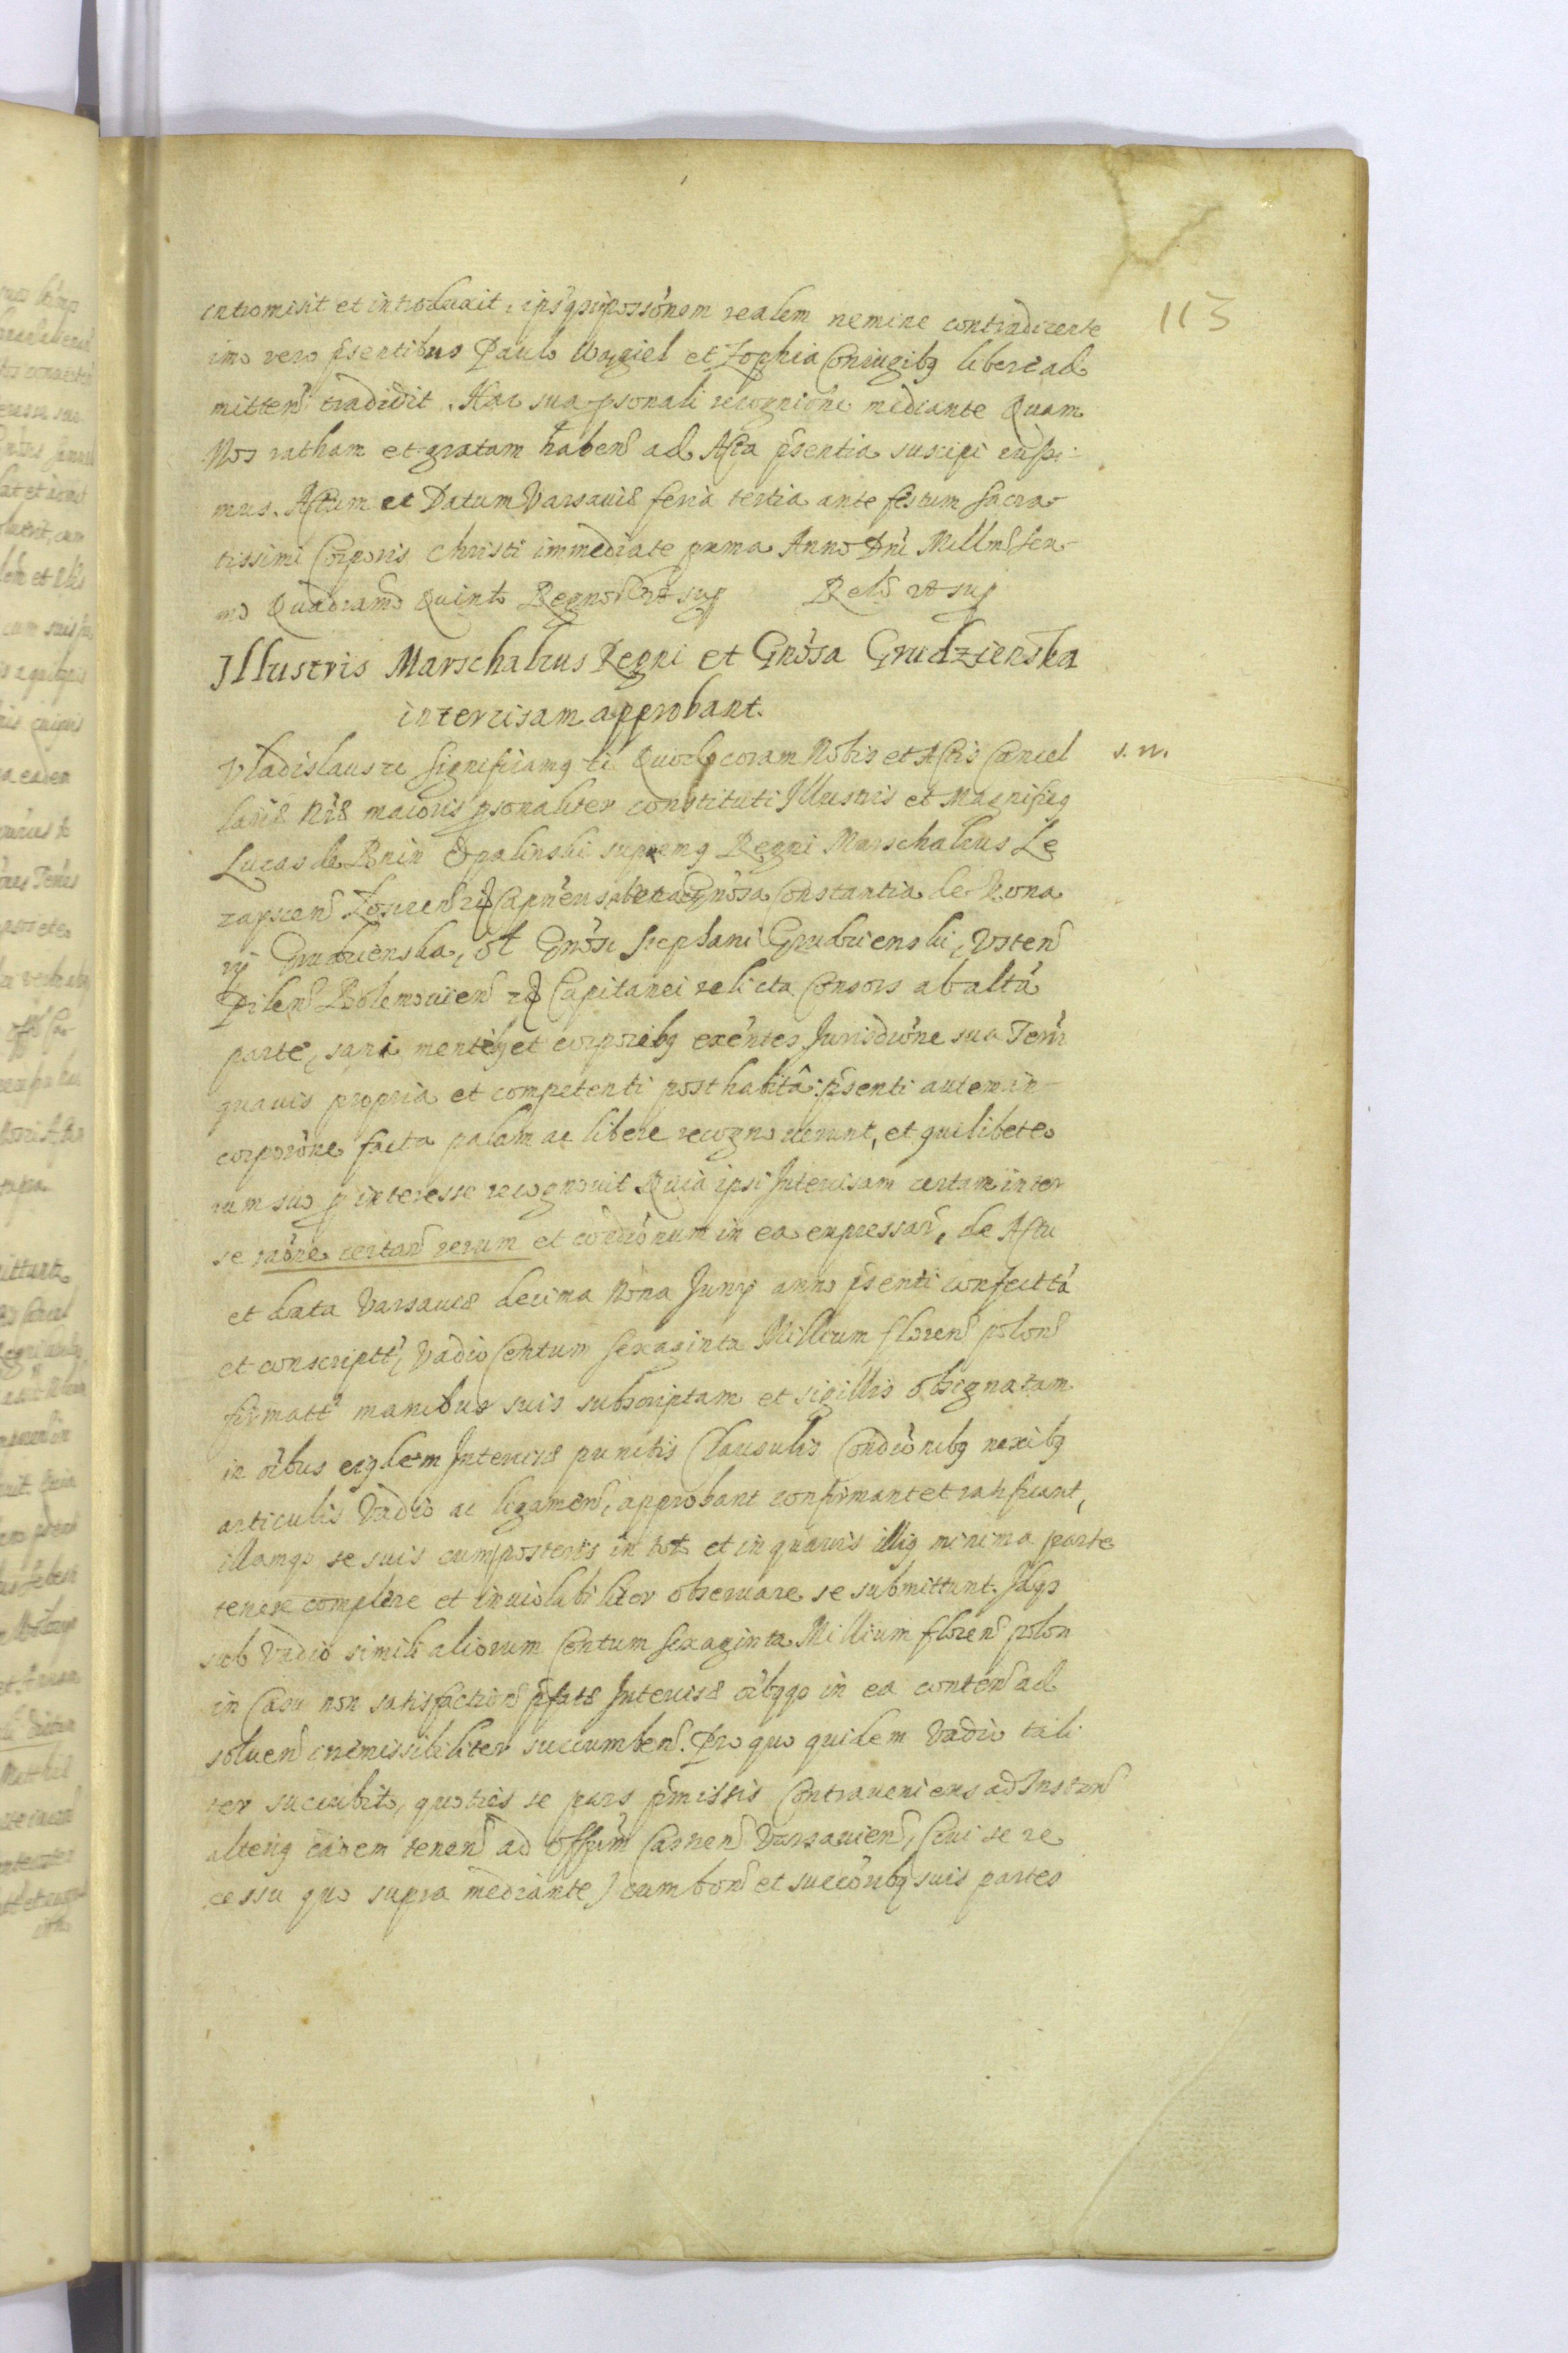 113
intromisit et introduxit, realem nemine contradicente
imo vero pñsentibus Paulo Wągiel et Zophia Coniugibq libere ad
mitteñ tradidit. Hac sua psonali recognicõne mediante Quam
Nos ratham et gratam habeñ ad Acta pñsentia suscipi
mus. Actum et Datum Varsaviæ feria tertia ante festum sacra
tissimi Corporis Christi immediate prima Anno Dñi Millmõ sex
mo Quadramõ Quinto Regnor ut sup Relõ ut sup
Illustris Marschalcus Regni et Gnõsa Grudzienska
intercisam approbant.
s. n.
Vladislaus rc significamq tc Quod coram Nobis et Actis Cancel
lariæ Nræ maioris psonaliter constituti Illustris et Magnificq
Lucas de Bnin Opalinski supremq Regni Marschalcus Le
zayscen Gnõsa Constantia de Kona
ry Grudzienska, ol Gnõsi Stephani Grudzienski, Usten
Pilen Bolemovien Capitanei relicta Consors ab altã
parte, sani mentibq et corporibq exẽntes Jurisdicõne sua Terrr
quavis propria et competenti posthabitâ pñsenti autem in
corporõne facta palam ac libere recognoverunt, et quilibet eo
rum suo p interesse recognovit Quia ipsi Intercisam certam inter
se raõne certar rerum et condicõnum in ea expressar, de Actu
et data Varsaviæ decima Nona Junij anno pñsenti confecttã
et conscriptt, Vadio Centum sexaginta Millium floren polon
firmatt manibus suis subscriptam et sigillis obsignatam
in oĩbus eiqdem Intercisæ punctis Clausulis Condicõnibq nexibq
articulis Vadio ac ligamen, approbant confirmant et ratificant,
illamqe se suis cum posteris in toto et in quavis illiq minima parte
tenere complere et inviolabiliter observare se submittunt. Idqe
sub Vadio simili aliorum Centum sexaginta Millium floren polon
in Casu non satisfaction pfatæ Intercisæ oĩbqqe in ea conten ad
solven irremissibiliter succumben. Pro quo quidem Vadio tali
ter succubito, quoties se pars pmissis Contraveniens ad Instan
alteriq eadem tenen ad Offum Castren Varsavien, (Cui se re
cessu quo supra mediante) cum bon et succõribq suis partes